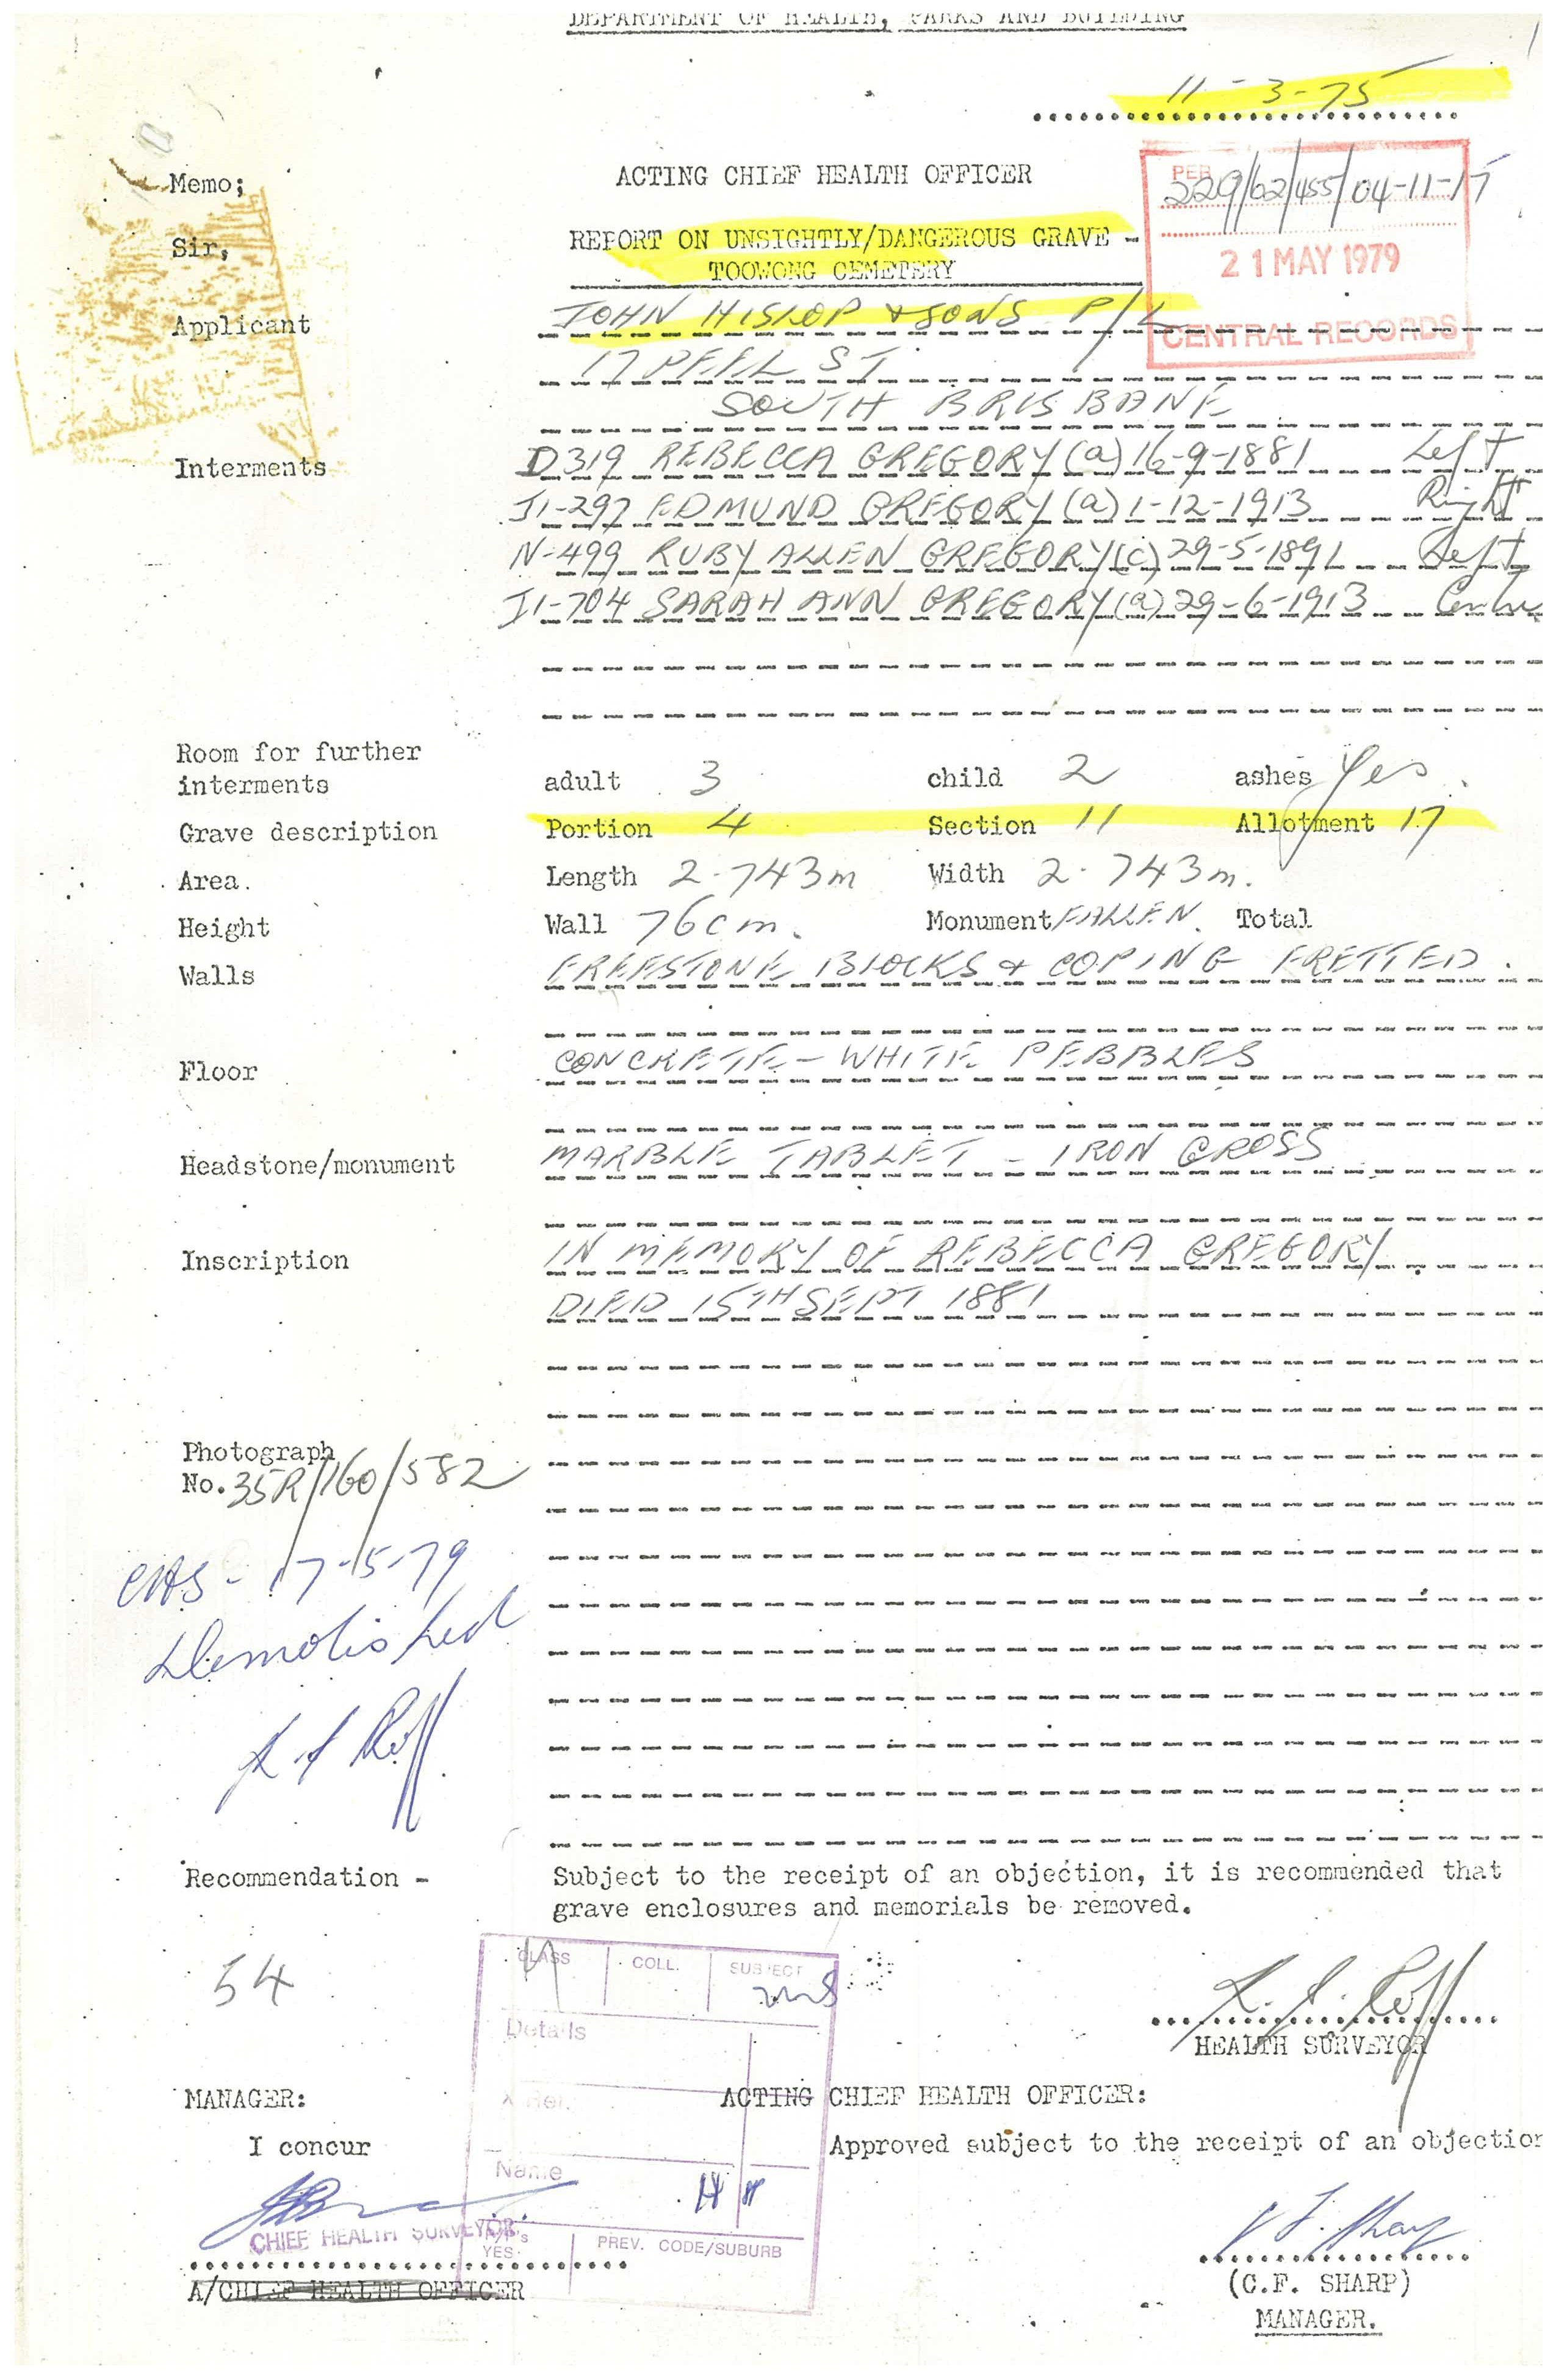 DEPARTMENT OF HEALTH, PARKS AND BUILDING
11-3-75
Memo;
ACTING CHIEF HEALTH OFFICER
PER
229/62/455/04-11-17
Sir,
REPORT ON UNSIGHTLY/DANGEROUS GRAVE -
TOOWONG CEMETERY
21 MAY 1979
CENTRAL RECORDS
Applicant JOHN HISLOP & SONS P/L
17 PEEL ST
SOUTH BRISBANE
Interments D319 REBECCA GREGORY (a) 16-9-1881 Left
J1-297 EDMUND GREGORY (a) 1-12-1913 Right
N-499 RUBY ALLEN GREGORY (c) 29-5-1891 Left
J1-704 SARAH ANN GREGORY (a) 29-6-1913 Centre
Room for further
interments adult 3 child 2 ashes Yes.
Grave description Portion 4 Section 11 Allotment 17
Area. Length 2.743m Width 2.743m.
Height Wall 76cm. Monument FALLEN. Total
Walls FREESTONE BLOCKS & COPING FRETTED.
Floor CONCRETE - WHITE PEBBLES
Headstone/monument MARBLE TABLET - IRON CROSS
Inscription IN MEMORY OF REBECCA GREGORY.
DIED 15TH SEPT 1881
Photograph
No. 35R/160/582
17-5-79
Demolished
Recommendation - Subject to the receipt of an objection, it is recommended that
grave enclosures and memorials be removed.
54
CLASS COLL. SUBJECT
Details
HEALTH SURVEYOR
X Ref.
MANAGER: ACTING CHIEF HEALTH OFFICER:
I concur Approved subject to the receipt of an objection
Name
CHIEF HEALTH SURVEYOR.
YES PREV. CODE/SUBURB
A/CHIEF HEALTH OFFICER
(C.F. SHARP)
MANAGER.